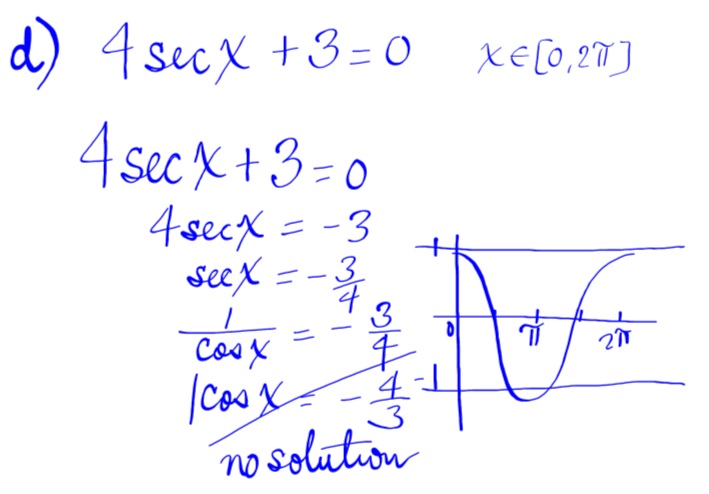 d) 4 sec x + 3 = 0 x ∈ [0, 2π]
4 sec x + 3 = 0
4 sec x = -3
sec x = -3/4
1/cos x = -3/4
1cos x = -4/3
no solution
1
0 π 2π
-1